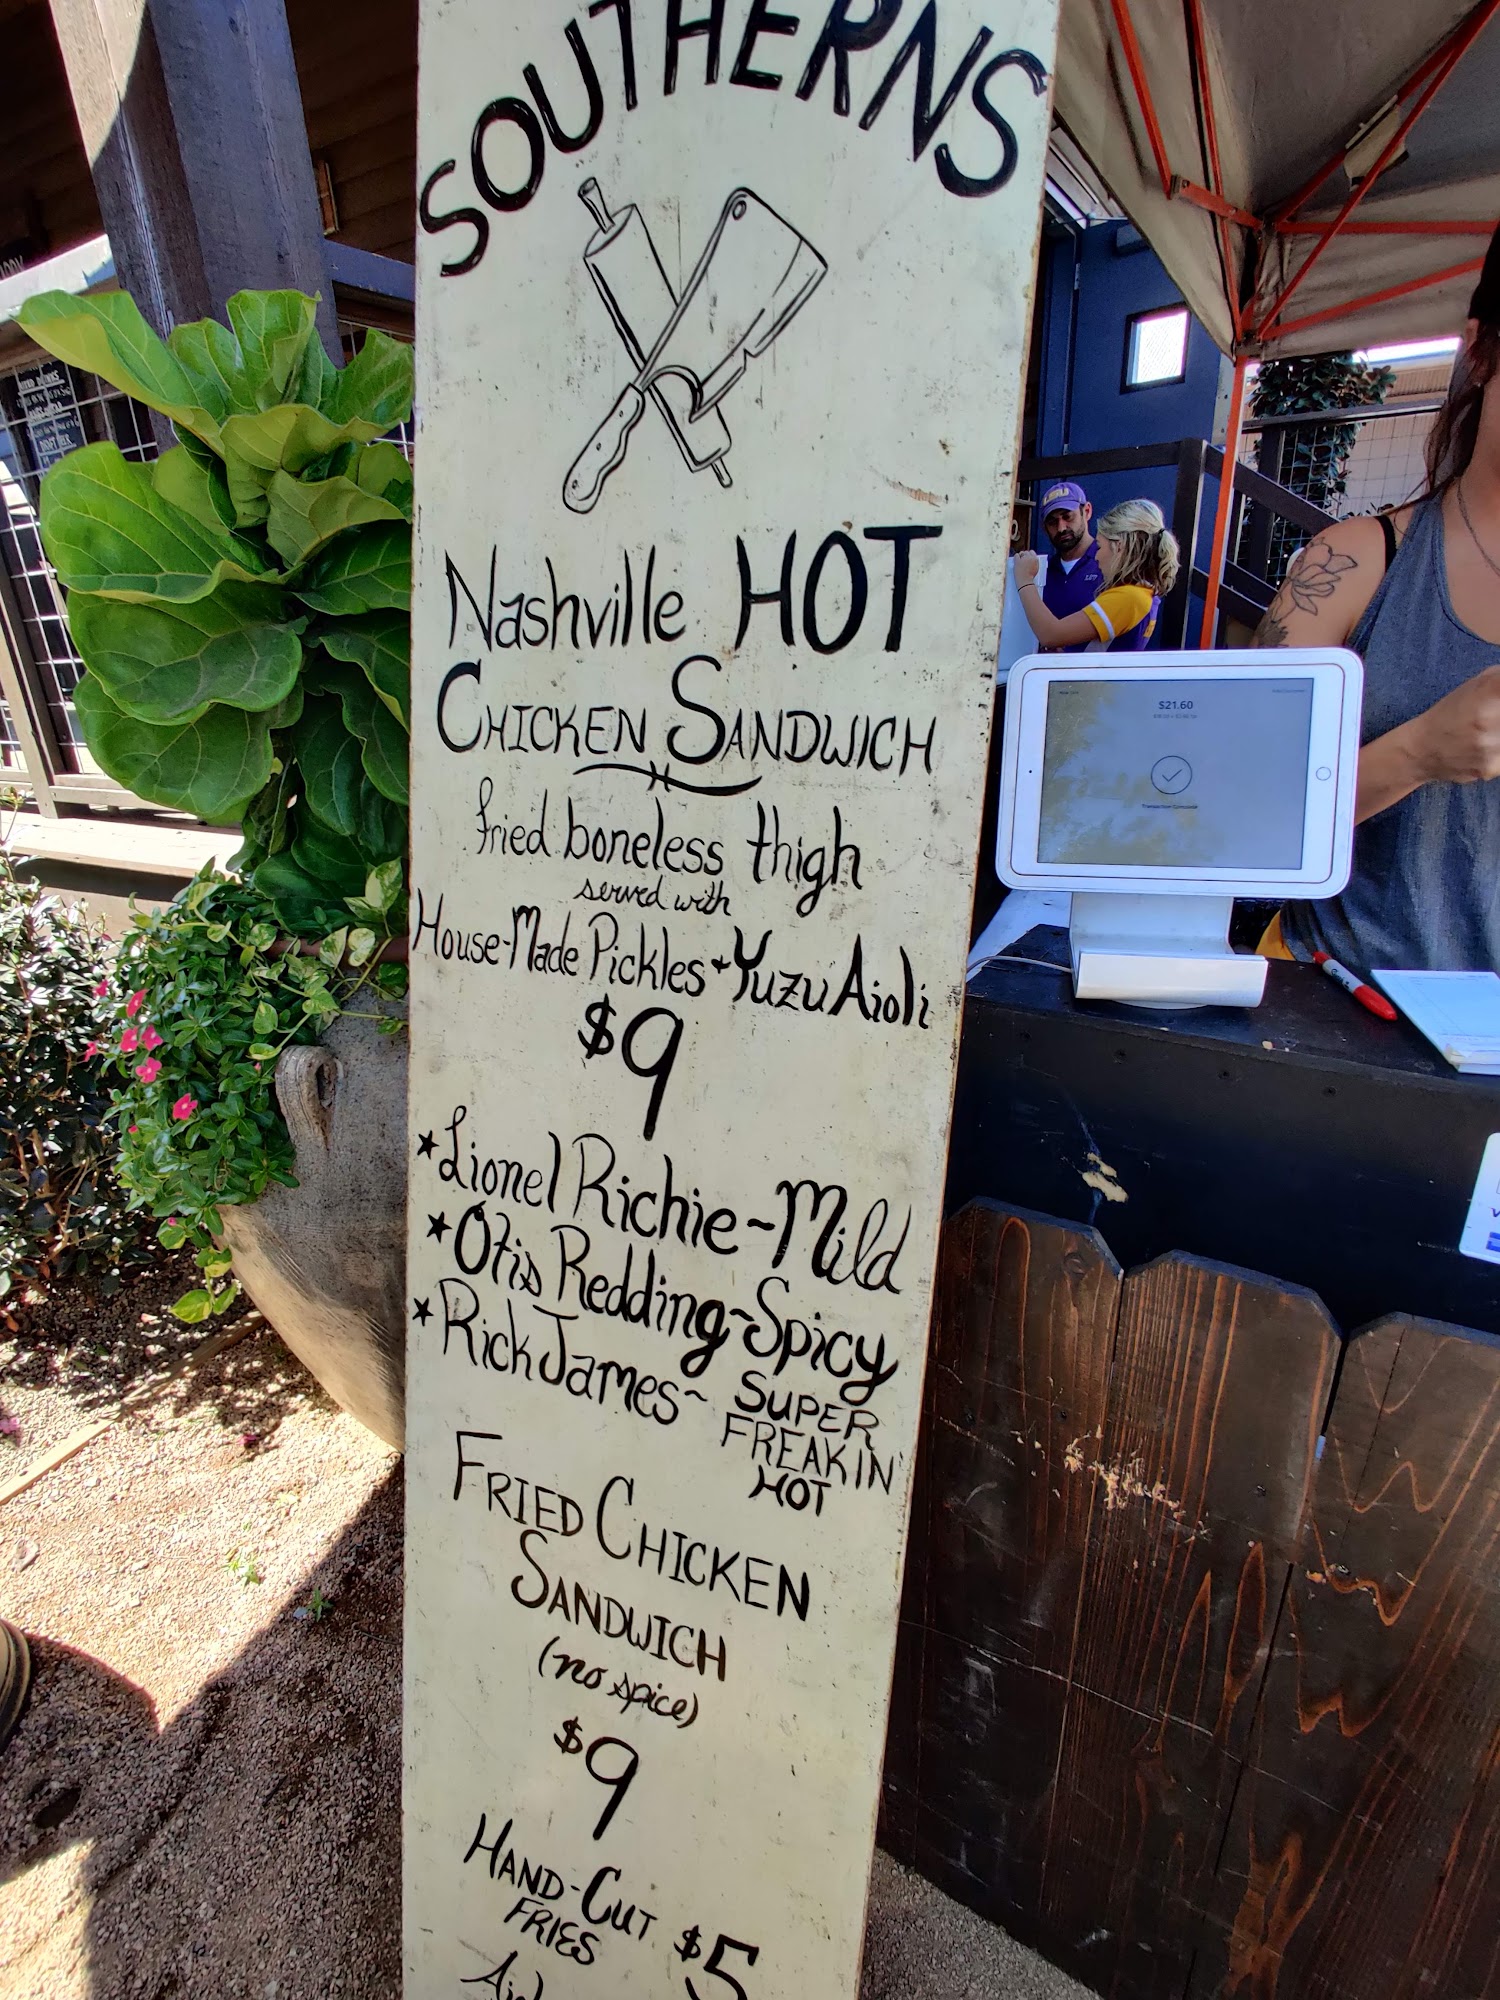 SOUTHERNS
Nashville HOT
CHICKEN SANDWICH
fried boneless thigh
served with
House-Made Pickles + Yuzu Aioli
$9
★Lionel Richie ~ Mild
★Otis Redding ~ Spicy
★Rick James ~ SUPER
FREAKIN'
HOT
FRIED CHICKEN
SANDWICH
(no spice)
$9
HAND-CUT
FRIES $5
$21.60
Transaction Complete
LSU